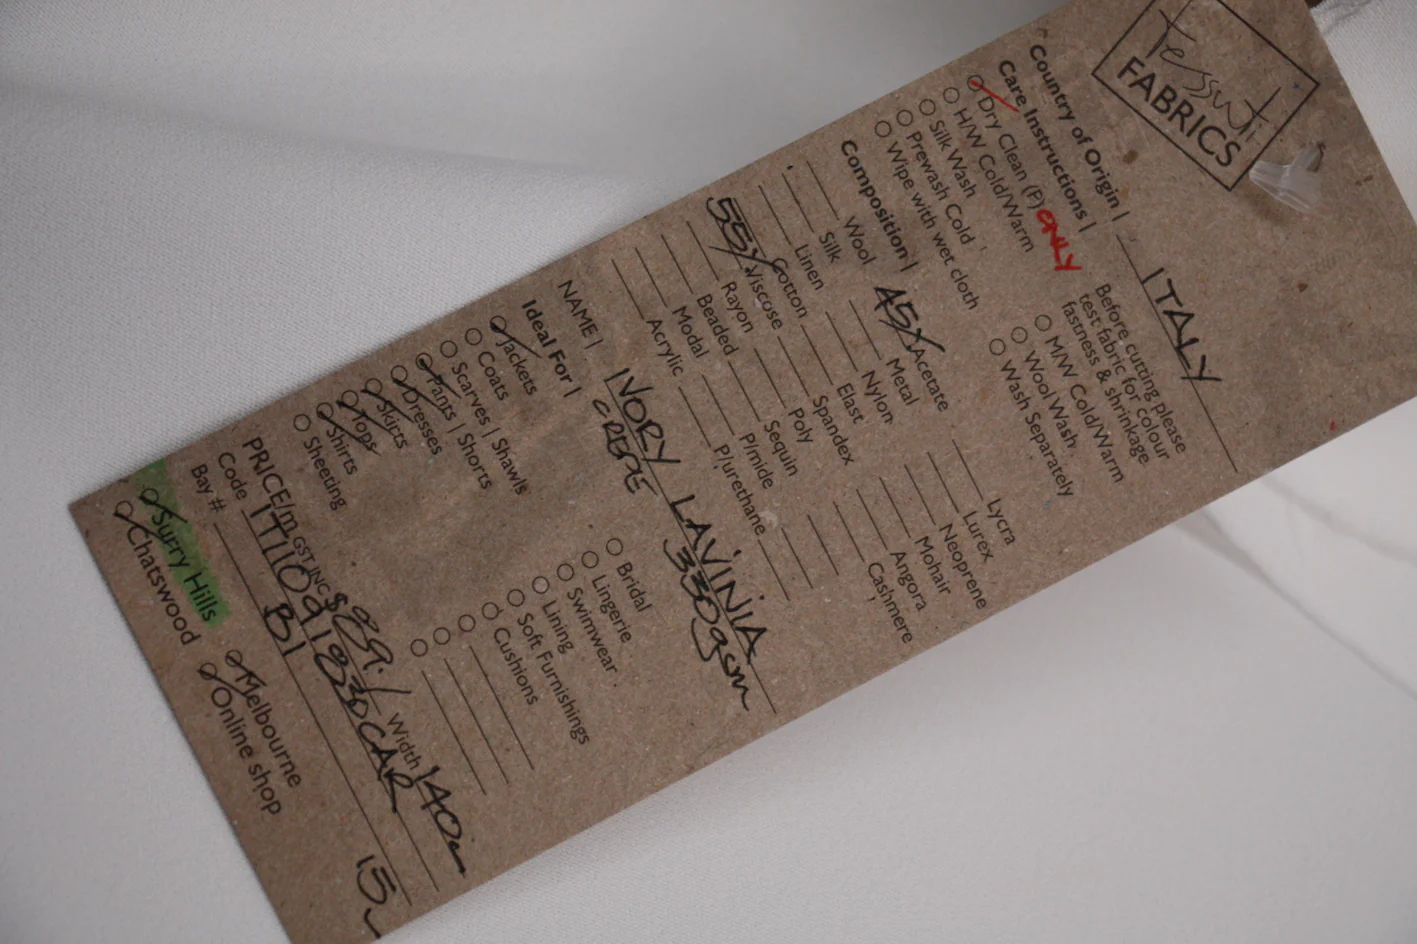 Tessuti
FABRICS
Country of Origin | ITALY
Care Instructions |
Dry Clean (P) ONLY
H/W Cold/Warm
Silk Wash
Prewash Cold
Wipe with wet cloth
Before cutting please
test fabric for colour
fastness & shrinkage
M/W Cold/Warm
Wool Wash
Wash Separately
Composition |
Wool
Silk
Linen
Cotton
55% Viscose
Rayon
Beaded
Modal
Acrylic
45% Acetate
Metal
Nylon
Elast
Spandex
Poly
Sequin
P/mide
P/urethane
Lycra
Lurex
Neoprene
Mohair
Angora
Cashmere
NAME | IVORY LAVINIA
CREPE 330gsm
Ideal For |
Jackets
Coats
Scarves | Shawls
Pants | Shorts
Dresses
Skirts
Tops
Shirts
Sheeting
Bridal
Lingerie
Swimwear
Lining
Soft Furnishings
Cushions
PRICE/m GST INC $89./ Width 140
Code
Bay # B1
15
Surry Hills
Chatswood
Melbourne
Online shop